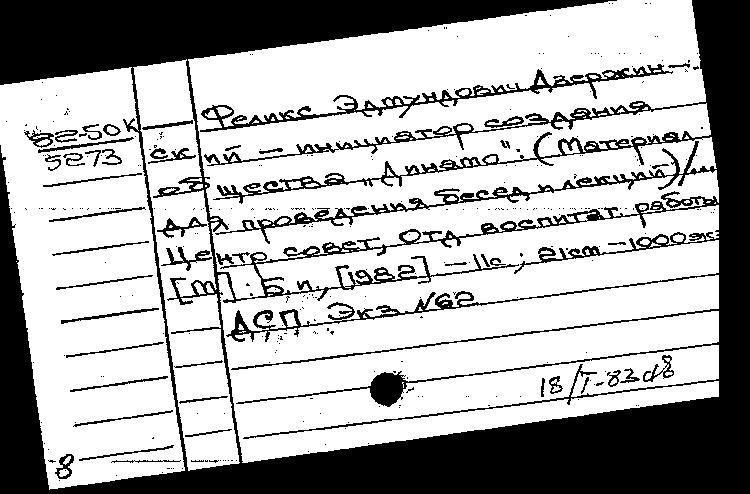 Феликс Эдмундович Дзержин-
82-50К
5273
ский — инициатор создания
общества „Динамо": (Материал
для проведения бесед и лекций)/...
Центр совет, Отд воспитат. работы
[М] : Б.и., [1982] - 11с ; 21см - 1000экз
ДСП. Экз №62
18/I-83
8